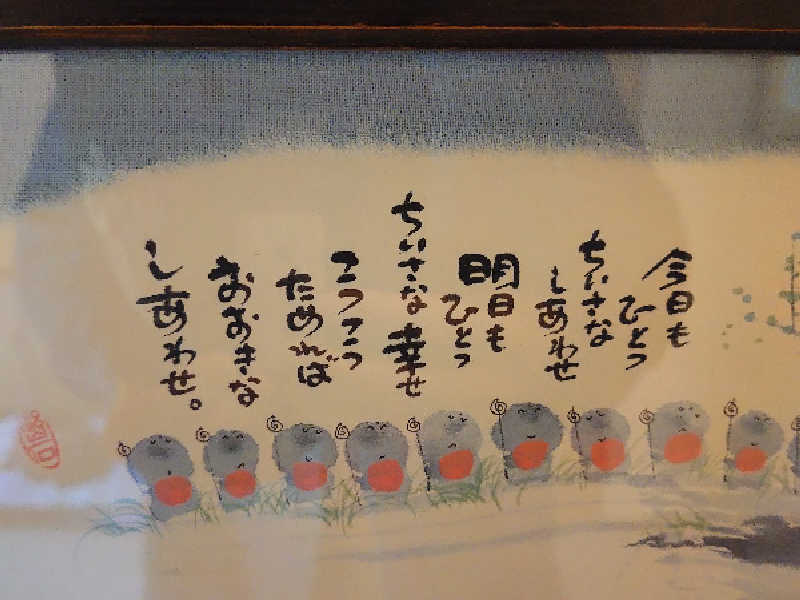 今日も
ひとつ
ちいさな
しあわせ
明日も
ひとつ
ちいさな幸せ
こつこつ
ためれば
おおきな
しあわせ。